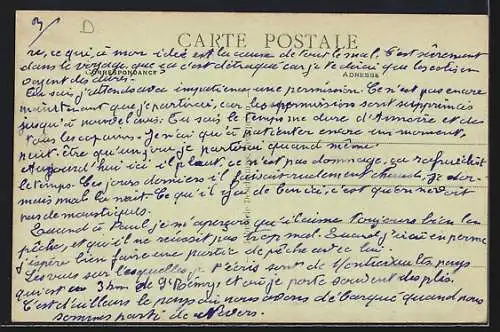 3)
D
CARTE POSTALE
CORRESPONDANCE
ADRESSE
re, ce qui, à mon idée est la cause de tout le mal. C'est sûrement
dans le voyage, que ça c'est détraqué car je te dirai que les colis en
ont des dures.
Tu sais j'attends avec impatience une permission. Ce n'est pas encore
maintenant que je partirai, car les permission sont supprimés
jusqu'à nouvel avis. Tu sais le temps me dure d'Annoire et de
tous les copains. Je n'ai qu'à patienter encore un moment,
peut-être qu'un jour je partirai quand même.
Aujourd'hui ici il pleut, ce n'est pas dommage, ça rafraichit
le temps. Ces jours derniers il faisait rudement chaud, je dor-
mais mal la nuit. Ce qu'il y a de béni, c'est qu'on ne voit
pas de moustiques.
Quand à Paul, je m'aperçois qu'il aime toujours bien la
pêche, et qu'il ne réussit pas trop mal. Quand j'irai en perme
j'espère bien faire une partie de pêche avec lui.
Les vues sur lesquelles je t'écris sont de pays
qui est à 3 km de St Rémy, et où je porte souvent des plis.
C'est d'ailleurs le pays où nous avons débarqué quand nous
sommes parti de